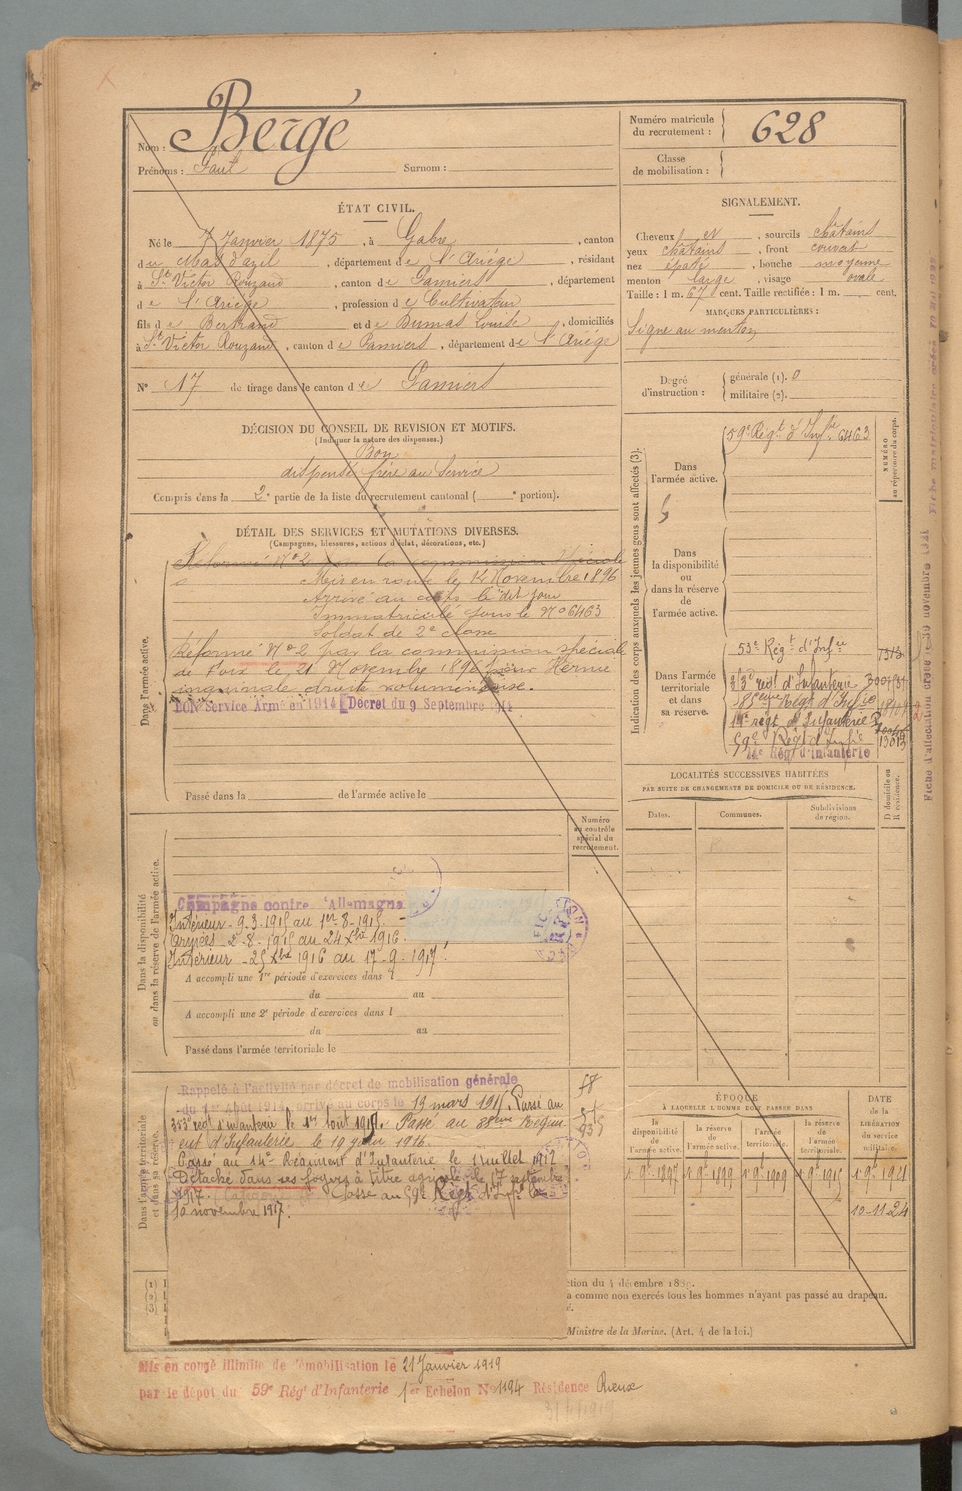 Nom : Bergé
Prénoms : Paul Surnom :
Numéro matricule du recrutement : 628
Classe de mobilisation :
ÉTAT CIVIL.
Né le 7 Janvier 1875, à Gabre, canton
du Mas d'azil, département de l'Ariège, résidant
à St Victor Rouzaud, canton de Pamiers, département
de l'Ariège, profession de Cultivateur
fils de Bertrand et de Dumas Louise, domiciliés
à St Victor Rouzaud, canton de Pamiers, département de l'Ariège
N° 17 de tirage dans le canton de Pamiers
SIGNALEMENT.
Cheveux et, sourcils châtains
yeux châtains, front couvert
nez épaté, bouche moyenne
menton large, visage ovale
Taille : 1 m. 67 cent. Taille rectifiée : 1 m. cent.
MARQUES PARTICULIÈRES :
Signe au menton
Degré d'instruction : générale (1). 0
militaire (2).
DÉCISION DU CONSEIL DE REVISION ET MOTIFS.
(Indiquer la nature des dispenses.)
Bon
dispensé frère au Service
Compris dans la 2e partie de la liste du recrutement cantonal ( e portion).
DÉTAIL DES SERVICES ET MUTATIONS DIVERSES.
(Campagnes, blessures, actions d'éclat, décorations, etc.)
Dans l'armée active.
Réformé N° 2 par la commission spéciale
Mis en route le 14 Novembre 1896
Arrivé au corps le dit jour
Immatriculé sous le N° 6463
Soldat de 2e classe
Réformé N° 2 par la commission spéciale
de Foix le 21 Novembre 1896 pour Hernie
inguinale droite volumineuse.
BON Service Armé en 1914 Décret du 9 Septembre 1914
Passé dans la de l'armée active le
Indication des corps auxquels les jeunes gens sont affectés (3).
NUMÉRO au répertoire du corps.
Dans l'armée active.
59e Régt d'Infie 6463
Dans la disponibilité ou dans la réserve de l'armée active.
Dans l'armée territoriale et dans sa réserve.
53e Régt d'Infie
85ème Régt d'Infie
14e régt d'Infanterie
59e Régt d'Infie 13013
14e Rég d'Infanterie
LOCALITÉS SUCCESSIVES HABITÉES
PAR SUITE DE CHANGEMENTS DE DOMICILE OU DE RÉSIDENCE.
D domicile ou R résidence.
Dates. Communes. Subdivisions de région.
Numéro au contrôle spécial du recrutement.
Dans la disponibilité ou dans la réserve de l'armée active.
Campagne contre l'Allemagne
Intérieur - 9-3-1915 au 1er-8-1915 -
Armées 2-8-1915 au 24 Xbre 1916.
Intérieur - 25 Xbre 1916 au 17-9-1917.
A accompli une 1re période d'exercices dans l
du au
A accompli une 2e période d'exercices dans l
du au
Passé dans l'armée territoriale le
Dans l'armée territoriale et dans sa réserve.
Rappelé à l'activité par décret de mobilisation générale
du 1er Août 1914, arrivé au corps le 19 mars 1915. Passé au
régt d'infanterie le 1er Août 1915. Passé au 85ème Régim
ent d'Infanterie le 10 juin 1916.
Passé au 14e Régiment d'Infanterie le 1 juillet 1917
Détaché dans ses foyers à titre agricole le 17 septembre
1917. Passé au 59e Régt d'Infie le
10 novembre 1917.
ÉPOQUE
À LAQUELLE L'HOMME DOIT PASSER DANS
la disponibilité de l'armée active. la réserve de l'armée active. l'armée territoriale. la réserve de l'armée territoriale.
DATE de la LIBÉRATION du service militaire.
1er 9bre 1897 1er 9bre 1899 1er 9bre 1909 1er 9bre 1915 1er 9bre 1921
10-11-24
(1)
(2)
(3)
ction du 4 décembre 1889.
a comme non exercés tous les hommes n'ayant pas passé au drapeau.
Ministre de la Marine. (Art. 4 de la loi.)
Mis en congé illimité de démobilisation le 21 Janvier 1919
par le dépôt du 59e Régt d'Infanterie 1er Echelon N° 1194 Résidence Rieux
Fiche d'affectation créée le 30 novembre 1921